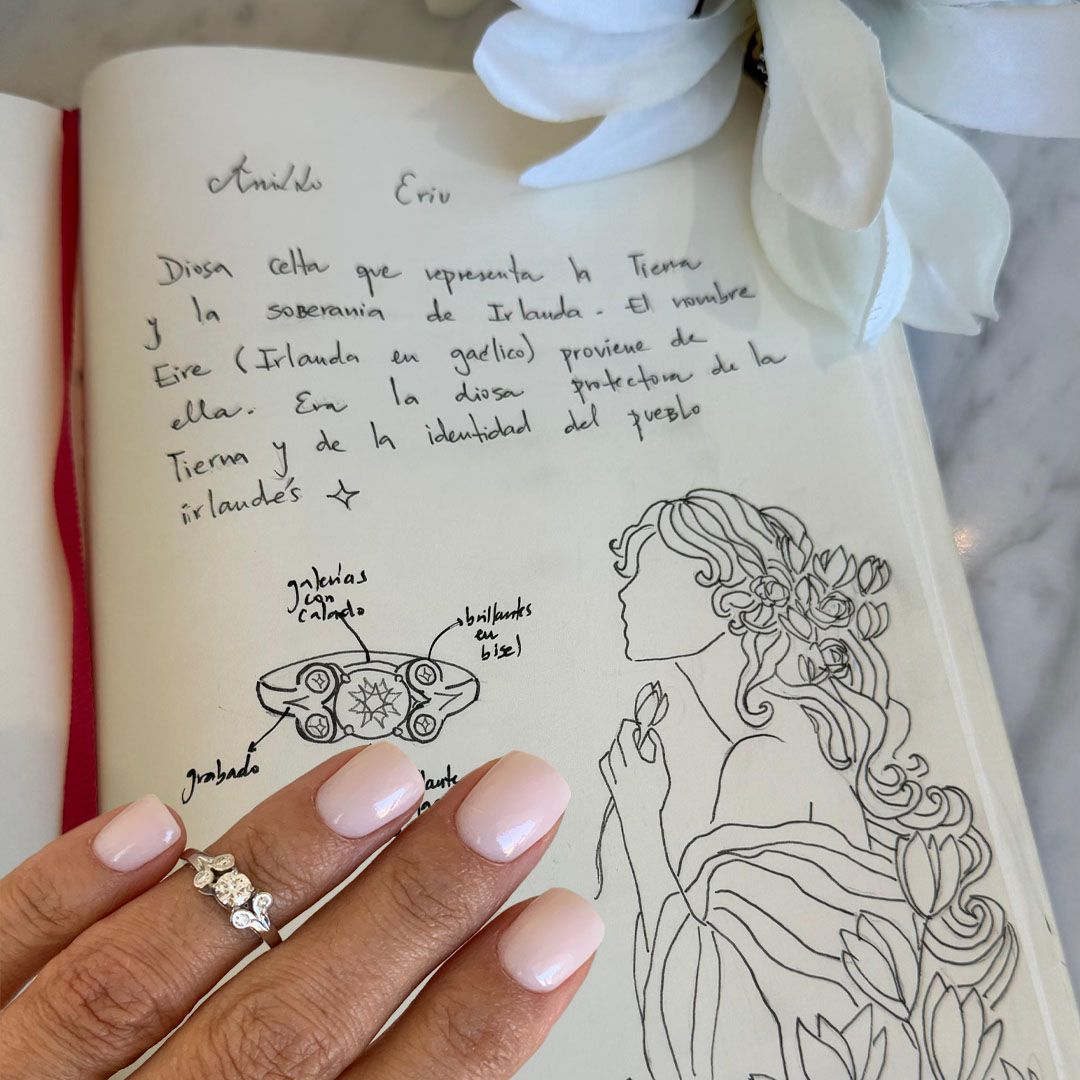 Anillo Eriu
Diosa celta que representa la Tierra
y la soberania de Irlanda. El nombre
Eire (Irlanda en gaélico) proviene de
ella. Era la diosa protectora de la
Tierra y de la identidad del pueblo
irlandés
galerías
con
calado
brillantes
en
bisel
grabado